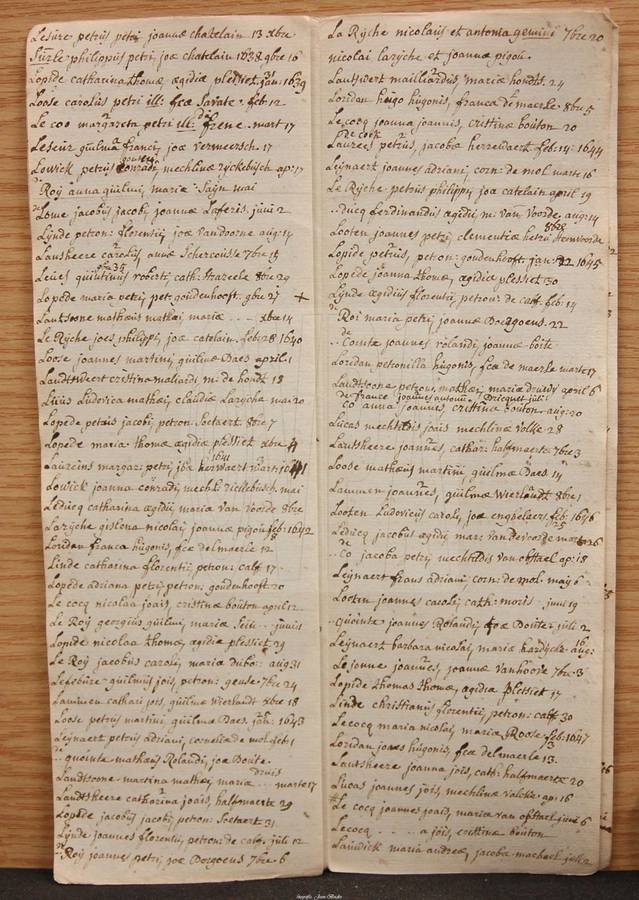 Lesûre petrus petri joannæ chatelain 13 xbre
philippus petri, joæ chatelain 1638 gbre 10
Lopide catharina thomæ ægidiæ plessiet jan: 1639
Loose carolus petri ill: fcæ Savate. feb: 12
Le coo margareta petri ill: frene. mart 17
Leseur guilmũ franci, joæ vermeersch. 17
Lowick petrus conradi, mechlinæ ryckebusch. ap: 17
Roÿ anna guilmi, mariæ mai
Lome jacobus jacobi, joannæ Laferis. junii 2
Lÿnde petron: florentii, joæ vandoorne aug: 14
Lansheere carolus annæ 7bre 15
quintinus roberti, cath: strazeele 8bre 29
Lopede maria petri, pet: goudenhooft. gbre 27
Lantsoone mathæus mathæi mariæ . . . xbre 14
Le Rÿche joes philippi, joæ catelain. feb: 28 1640
Loose joannes martini, guilmæ Daes april 1
Landtsweert cristina maliardi m: de hondt 18
Ludovica mathæi, claudiæ Larÿche mai 20
Lopede petrus jacobi, petron: Soetaert. 8bre 7
Lopede maria thomæ ægidiæ plessiet xbre 4
Laureins margar: petri, joæ herwaert marti 1641
Lowick joanna conradi, mechli: rickebusch. mai
Leducq catharina ægidii, maria van voorde 8bre
Larÿche gislena nicolai, joannæ pigou feb: 1642
Loridan franca hugonis, fcæ delmaerle 12
Linde catharina florentii petron: calf 17
Lopede adriana petri petron: goudenhooft. 20
Le cocq nicolaa joais, cristinæ boúton april 12
Le Roÿ georgius guilmi, mariæ . . junii
Lopide nicolaa thomæ, ægidiæ plessiet 29
Le Roÿ jacobus caroli, mariæ dubois: aug 31
Lefebúre guilmus jois, petron: geuse 7bre 24
Lammen cathari jois, guilmæ wierlandt xbre 18
Loose petrus martini, guilmæ Daes. jan: 1643
Leijnaert petrus adriani, corneliæ de mol feb: 1
quointe mathæus Rolandi, joæ Doute
Landtsoone martina mathæi, mariæ druis marte 17
Landtsheere catharina joais, halfmaerte 29
Lopede jacobus jacobi, petron: Soetaert 21
Lÿnde joannes florentii, petron: de calf. júli 12
Roÿ joannes petri, joæ Borgoens 7bre 6
La Rÿche nicolaus et antonia gemini 7bre 20
nicolai larÿche et joannæ pigou.
Lantswert mailliardus, mariæ hondts. 24
Loridan hugo hugonis, francæ de maerle 8bre 5
Le cocq joanna joannis, cristinæ boúton 20
de cock
Laureÿs petrus, jacobæ herrewaert feb: 14: 1644
Leijnaert joannes adriani, corn: de mol marte 16
Le Rÿche petrus philippi, joæ catelain april 19
. . ducq ferdinandus ægidii, m: van voorde, aug: 14
Looten joannes petri, clementiæ 8bre
Lopide petrus, petron: goudenhooft. jan: 22 1645
Lopede joanna thomæ, ægidiæ plessiet 30
Lÿnde ægidius florentii, petron: de calf. feb: 14
Roi maria petri, joannæ Borgoens. 22
de
. . Comte joannes rolandi, joannæ boite
Loridan petronilla hugonis, fcæ de maerle marte 17
Landtsoone petrus mathæi, mariæ druidÿ april 6
de france joannes antonii, Dricquet júli
Co anna joannes, cristina bouton. aug: 20
Lucas mechtildis joais mechlinæ valke. 28
Lantsheere joannes, cathar: halfmaerte 7bre 3
Loose mathæus martini guilmæ Daes 14
Lammen joannes, guilmæ wierlandt 8bre 1
Looten Ludovicus caroli, joæ engelaers feb: 1646
Leducq jacobus ægidii, mar: van de voorde mar 26
Co jacoba petri mechtildis van offtael ap: 18
Leijnaert frans adriani, corn: de mol. maÿ 6
Looten joannes caroli, cath: moris juni 19
quointe joannes Rolandi, joæ Doúte júli 2
Leijnaert barbara nicolai, mariæ hardÿck. 16 aug:
Le jonne joannes, joannæ vanhoove 7bre 3
Lopide thomas thomæ, ægidiæ plessiet 17
Linde christianus florentii, petron: calf 30
Le cocq maria nicolai, mariæ Roose feb: 1647
Loridan joaes hugonis, fcæ delmaerle 13.
Lantsheere joanna jois, cath: halfmaerte 20
Lucas joannes jois, mechlinæ valcke. ap: 16
Le cocq joannes joais, mariæ van offtael june 6
Lecocq . . . a jois, cristinæ bouton
maria andreæ, jacoba machael julii 2